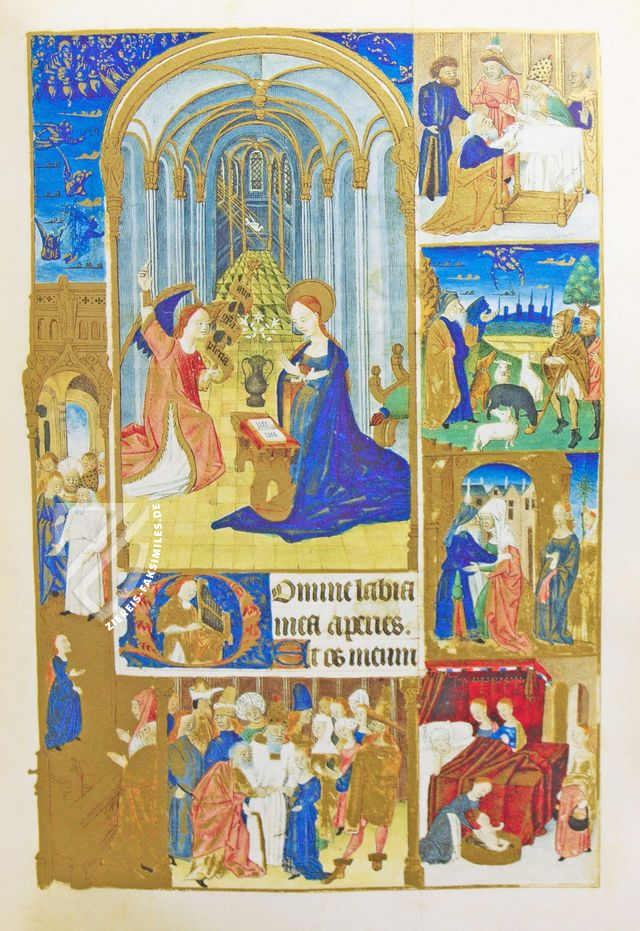 aue
gra
plena
Domine labia
mea aperies.
Et os meum
ZIEREIS-FAKSIMILES.DE